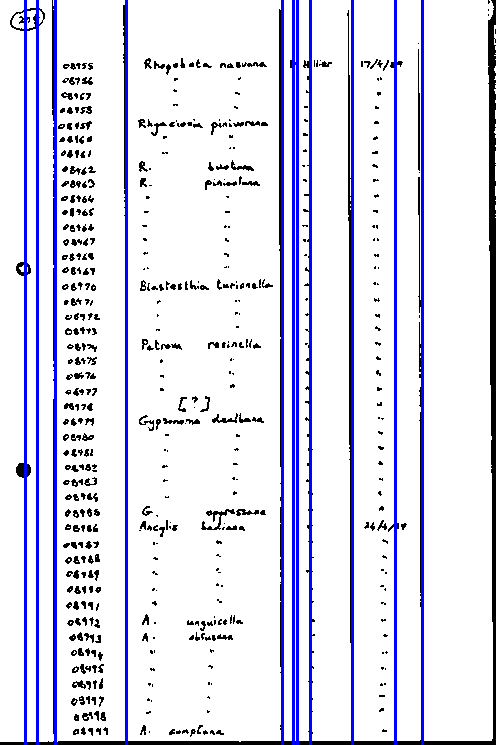 08955 Rhopobota naevana Hillier
08956 " " " "
08957 " " " "
08958 " " " "
08959 Rhyacionia pinivorana " "
08960 " " " "
08961 " " " "
08962 R. buoliana " "
08963 R. pinicolana " "
08964 " " " "
08965 " " " "
08966 " " " "
08967 " " " "
08968 " " " "
08969 " " " "
08970 Blastesthia turionella " "
08971 " " " "
08972 " " " "
08973 " " " "
08974 Petrova resinella " "
08975 " " " "
08976 " " " "
08977 " " " "
08978 [?] " "
08979 Gypsonoma dealbana " "
08980 " " " "
08981 " " " "
08982 " " " "
08983 " " " "
08984 " " " "
08985 G. oppressana " "
08986 Ancylis badiana "
08987 " " " "
08988 " " " "
08989 " " " "
08990 " " " "
08991 " " " "
08992 A. unguicella " "
08993 A. obtusana " "
08994 " " " "
08995 " " " "
08996 " " " "
08997 " " " "
08998 " " " "
08999 A. comptana " "